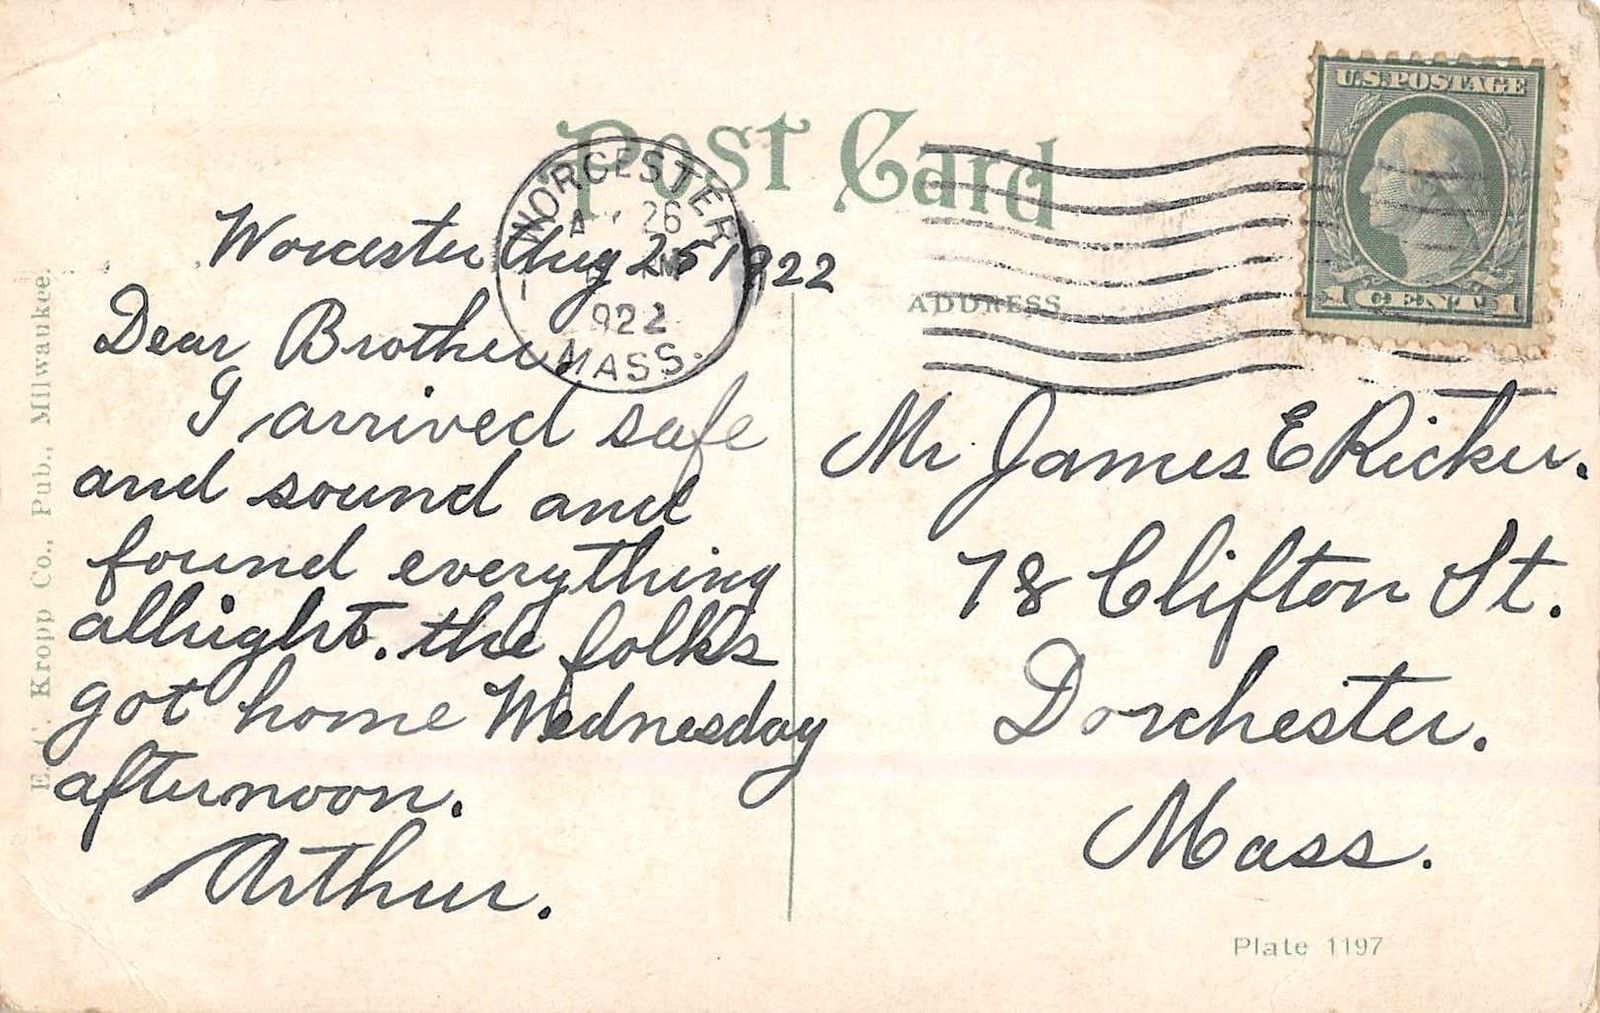 Post Card
WORCESTER
26
1922
MASS.
U.S. POSTAGE
1 CENT 1
ADDRESS
Worcester Aug 25 1922
Dear Brother
I arrived safe
and sound and
found everything
allright. the folks
got home Wednesday
afternoon.
Arthur.
Mr. James E Ricker.
78 Clifton St.
Dorchester.
Mass.
E. C. Kropp Co., Pub., Milwaukee.
Plate 1197